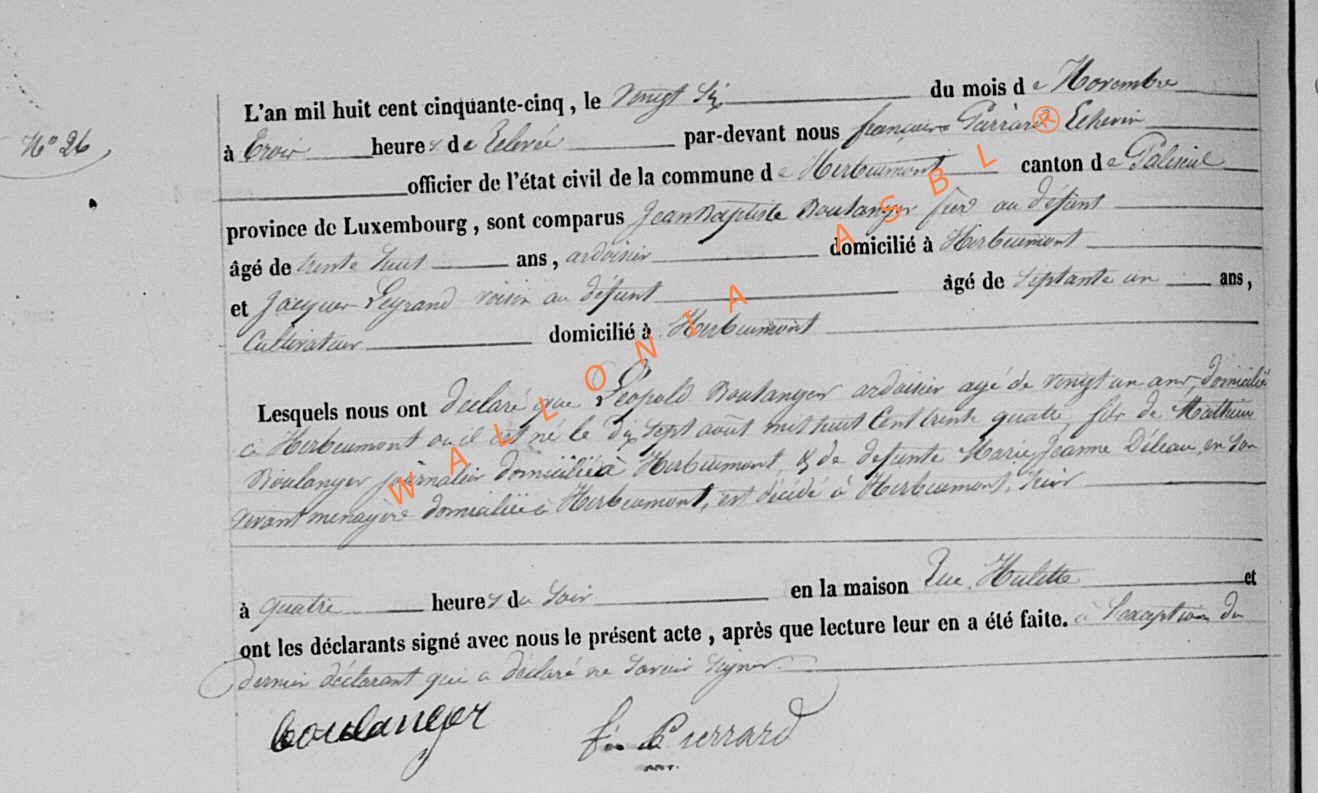 N° 26
L'an mil huit cent cinquante-cinq, le vingt six du mois de Novembre
à trois heures de relevée par-devant nous françois Pierrard Echevin
officier de l'état civil de la commune de Herbeumont canton de Paliseul
province de Luxembourg, sont comparus Jean Baptiste Boulanger au défunt
âgé de trente huit ans, ardoisier domicilié à Herbeumont
et Jacques voisin au défunt âgé de septante un ans,
Cultivateur domicilié à Herbeumont
Lesquels nous ont déclaré que Léopold Boulanger ardoisier agé de vingt un ans, domicilié
à Herbeumont où il est né le dix sept août mil huit cent trente quatre, fils de Mathieu
Boulanger journalier domicilié à Herbeumont, & de défunte Marie Jeanne en son
vivant ménagère domiciliée à Herbeumont, est décédé à Herbeumont, hier
à quatre heures du soir en la maison Rue Hulette et
ont les déclarants signé avec nous le présent acte, après que lecture leur en a été faite. à l'exception du
dernier déclarant qui a déclaré ne savoir signer.
boulanger
Pierrard
WALLONIA ASBL ®